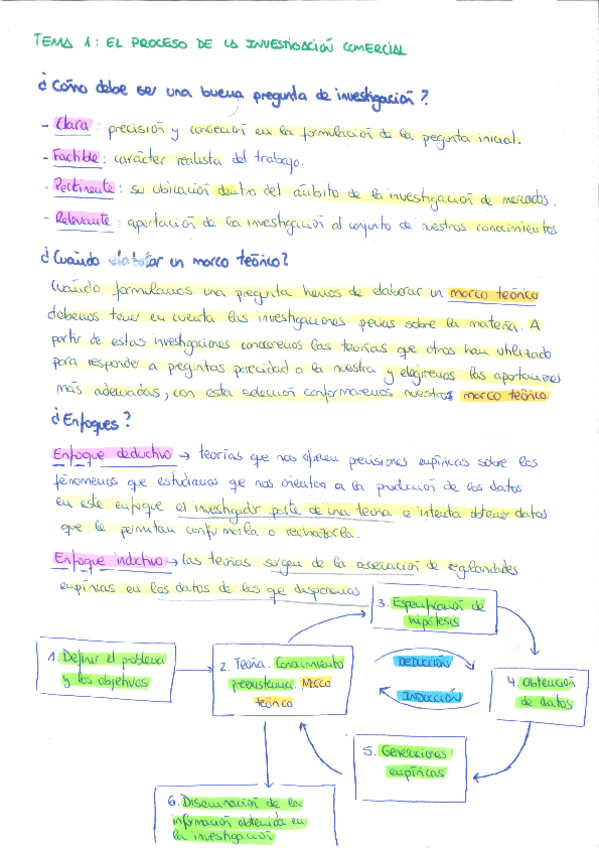 TEMA 1: EL PROCESO DE LA INVESTIGACIÓN COMERCIAL
¿Cómo debe ser una buena pregunta de investigación?
- Clara: precisión y concreción en la formulación de la pegunta inicial.
- Factible: carácter realista del trabajo.
- Pertinente: su ubicación dentro del ámbito de la investigación de mercados.
- Relevante: aportación de la investigación al conjunto de nuestros conocimientos
¿Cuándo elaborar un marco teórico?
Cuándo formulamos una pregunta hemos de elaborar un marco teórico
debemos tener en cuenta las investigaciones previas sobre la materia. A
partir de estas investigaciones conoceremos las teorías que otros han utilizado
para responder a preguntas parecidad a la nuestra y elegiremos las aportaciones
más adecuadas, con esta selección conformaremos nuestro marco teórico
¿Enfoques?
Enfoque deductivo → teorías que nos ofrecen precisiones empíricas sobre los
fenómenos que estudiamos que nos orientan a la producción de los datos
en este enfoque el investigador parte de una teoría e intenta obtener datos
que le permitan confirmarla o rechazarla.
Enfoque inductivo → las teorías surgen de la observación de regularidades
empíricas en los datos de los que disponemos
3. Especificación de
hipótesis
1. Definir el problema
y los objetivos
2. Teoría. Conocimiento
preexistente. Marco
teórico
DEDUCCIÓN
INDUCCIÓN
4. Obtención
de datos
5. Generaciones
empíricas
6. Diseminación de la
información obtenida en
la investigación